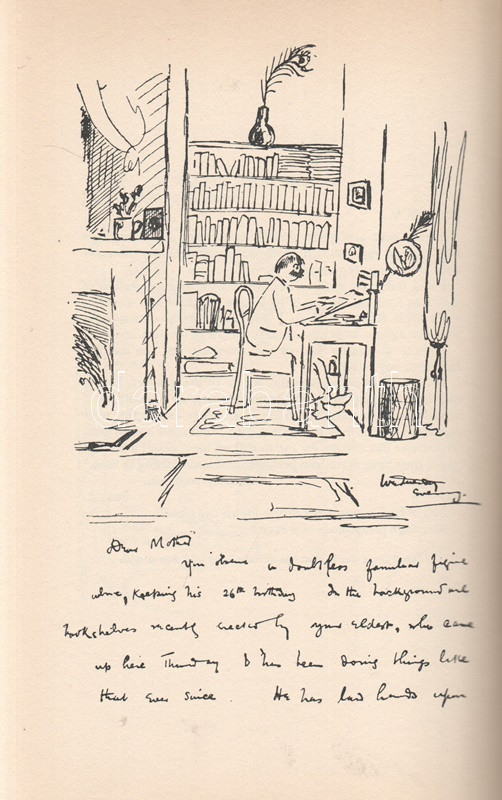 Wednesday
Evening.
Dear Mother
You observe a doubtless familiar figure
above, keeping his 26th birthday In the background are
bookshelves recently erected by your eldest, who came
up here Thursday & has been doing things like
that ever since. He has laid hands upon
darabanth